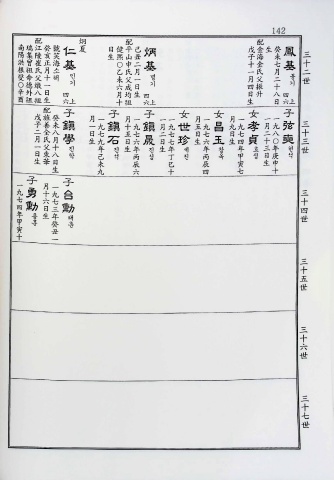 142
三十二世
三十三世
三十四世
三十五世
三十六世
三十七世
鳳基 봉기
癸未七月二十八
日生
配金海金氏父振升
戊子十一月四日生
炳基 병기
己丑二月一日生
配平山申氏父成均
健熙〇乙未六月十
日生
炳夏
仁基 인기
號笑海士明
癸亥正月十一日生
子
一九八〇年庚申十
一月二十三日生
女 孝貞 효정
一九七四年甲寅七
月九日生
女 昌玉 창옥
一九七六年丙辰四
月五日生
女 世珍 세진
一九七七年丁巳十
子 鎭晟 진성
一九七六年丙辰六
月十五日生
子 鎭石 진석
一九七九年己未九
月一日生
子 鎭學 진학
癸未八月十八日生
戊子二月一日生
子 台勳 태훈
一九七三年癸丑一
月十六日生
子 勇勳 용훈
一九七四年甲寅十